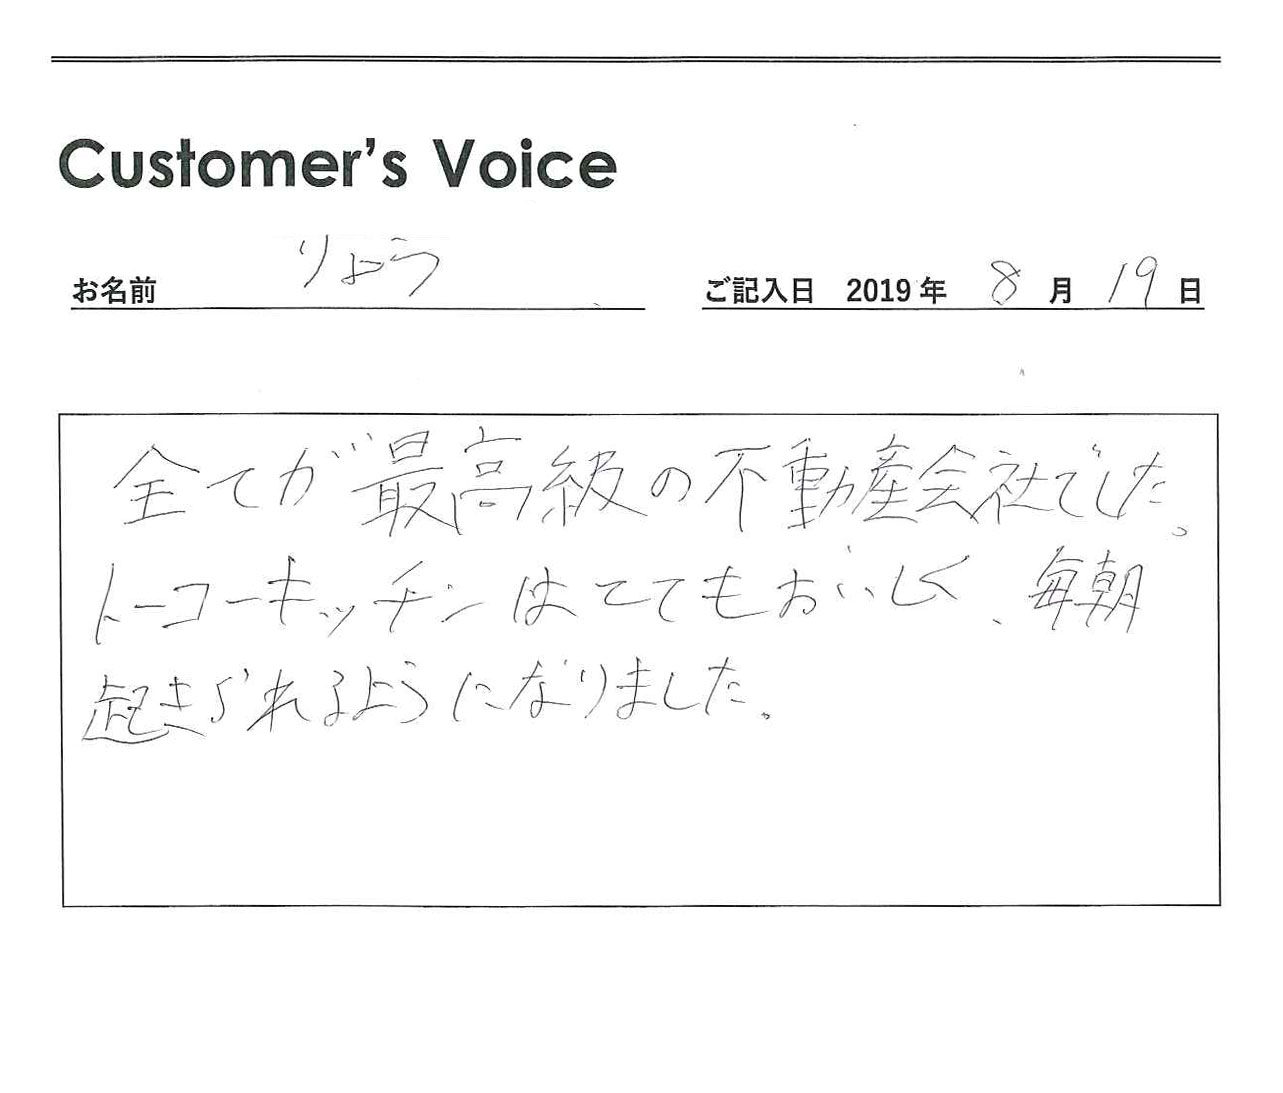 Customer's Voice
お名前 りょう ご記入日 2019年 8月 19日
全てが最高級の不動産会社でした。
トーコーキッチンはとてもおいしく、毎朝
起きられるようになりました。